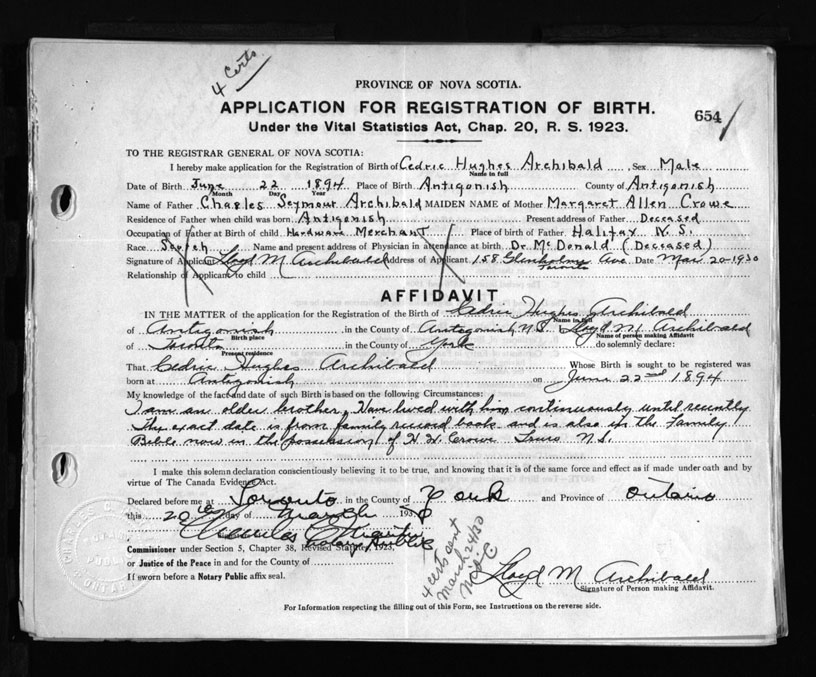 4 Certs
PROVINCE OF NOVA SCOTIA.
APPLICATION FOR REGISTRATION OF BIRTH.
654
Under the Vital Statistics Act, Chap. 20, R. S. 1923.
TO THE REGISTRAR GENERAL OF NOVA SCOTIA:
I hereby make application for the Registration of Birth of Cedric Hughes Archibald Sex Male
Name in full
Date of Birth June 22 1894 Place of Birth Antigonish County of Antigonish
Month Day Year
Name of Father Charles Seymour Archibald MAIDEN NAME of Mother Margaret Allen Crowe
Residence of Father when child was born Antigonish Present address of Father Deceased
Occupation of Father at Birth of child Hardware Merchant Place of birth of Father Halifax N. S.
Race Scotch Name and present address of Physician in attendance at birth Dr. McDonald (Deceased)
Signature of Applicant Lloyd M Archibald Address of Applicant 158 Glenholme Ave Date Mar 20-1930
Toronto
Relationship of Applicant to child
AFFIDAVIT
IN THE MATTER of the application for the Registration of the Birth of Cedric Hughes Archibald
Name in full
of Antigonish in the County of Antigonish N.S. Lloyd M. Archibald
Birth place Name of person making Affidavit
of Toronto in the County of York do solemnly declare:
Present residence
That Cedric Hughes Archibald Whose Birth is sought to be registered was
born at Antigonish on June 22nd 1894
My knowledge of the fact and date of such Birth is based on the following Circumstances:
I am an older brother, Have lived with him continuously until recently
The exact date is from family record book and is also in the Family
Bible now in the possession of H. H. Crowe Truro N.S.
I make this solemn declaration conscientiously believing it to be true, and knowing that it is of the same force and effect as if made under oath and by
virtue of The Canada Evidence Act.
Declared before me at Toronto in the County of York and Province of Ontario
this 20th day of March 1930
Charles
Notary Public
Commissioner under Section 5, Chapter 38, Revised Statutes, 1923,
or Justice of the Peace in and for the County of
If sworn before a Notary Public affix seal.
4 certs sent
March 24/30
Lloyd M Archibald
Signature of Person making Affidavit.
For Information respecting the filling out of this Form, see Instructions on the reverse side.